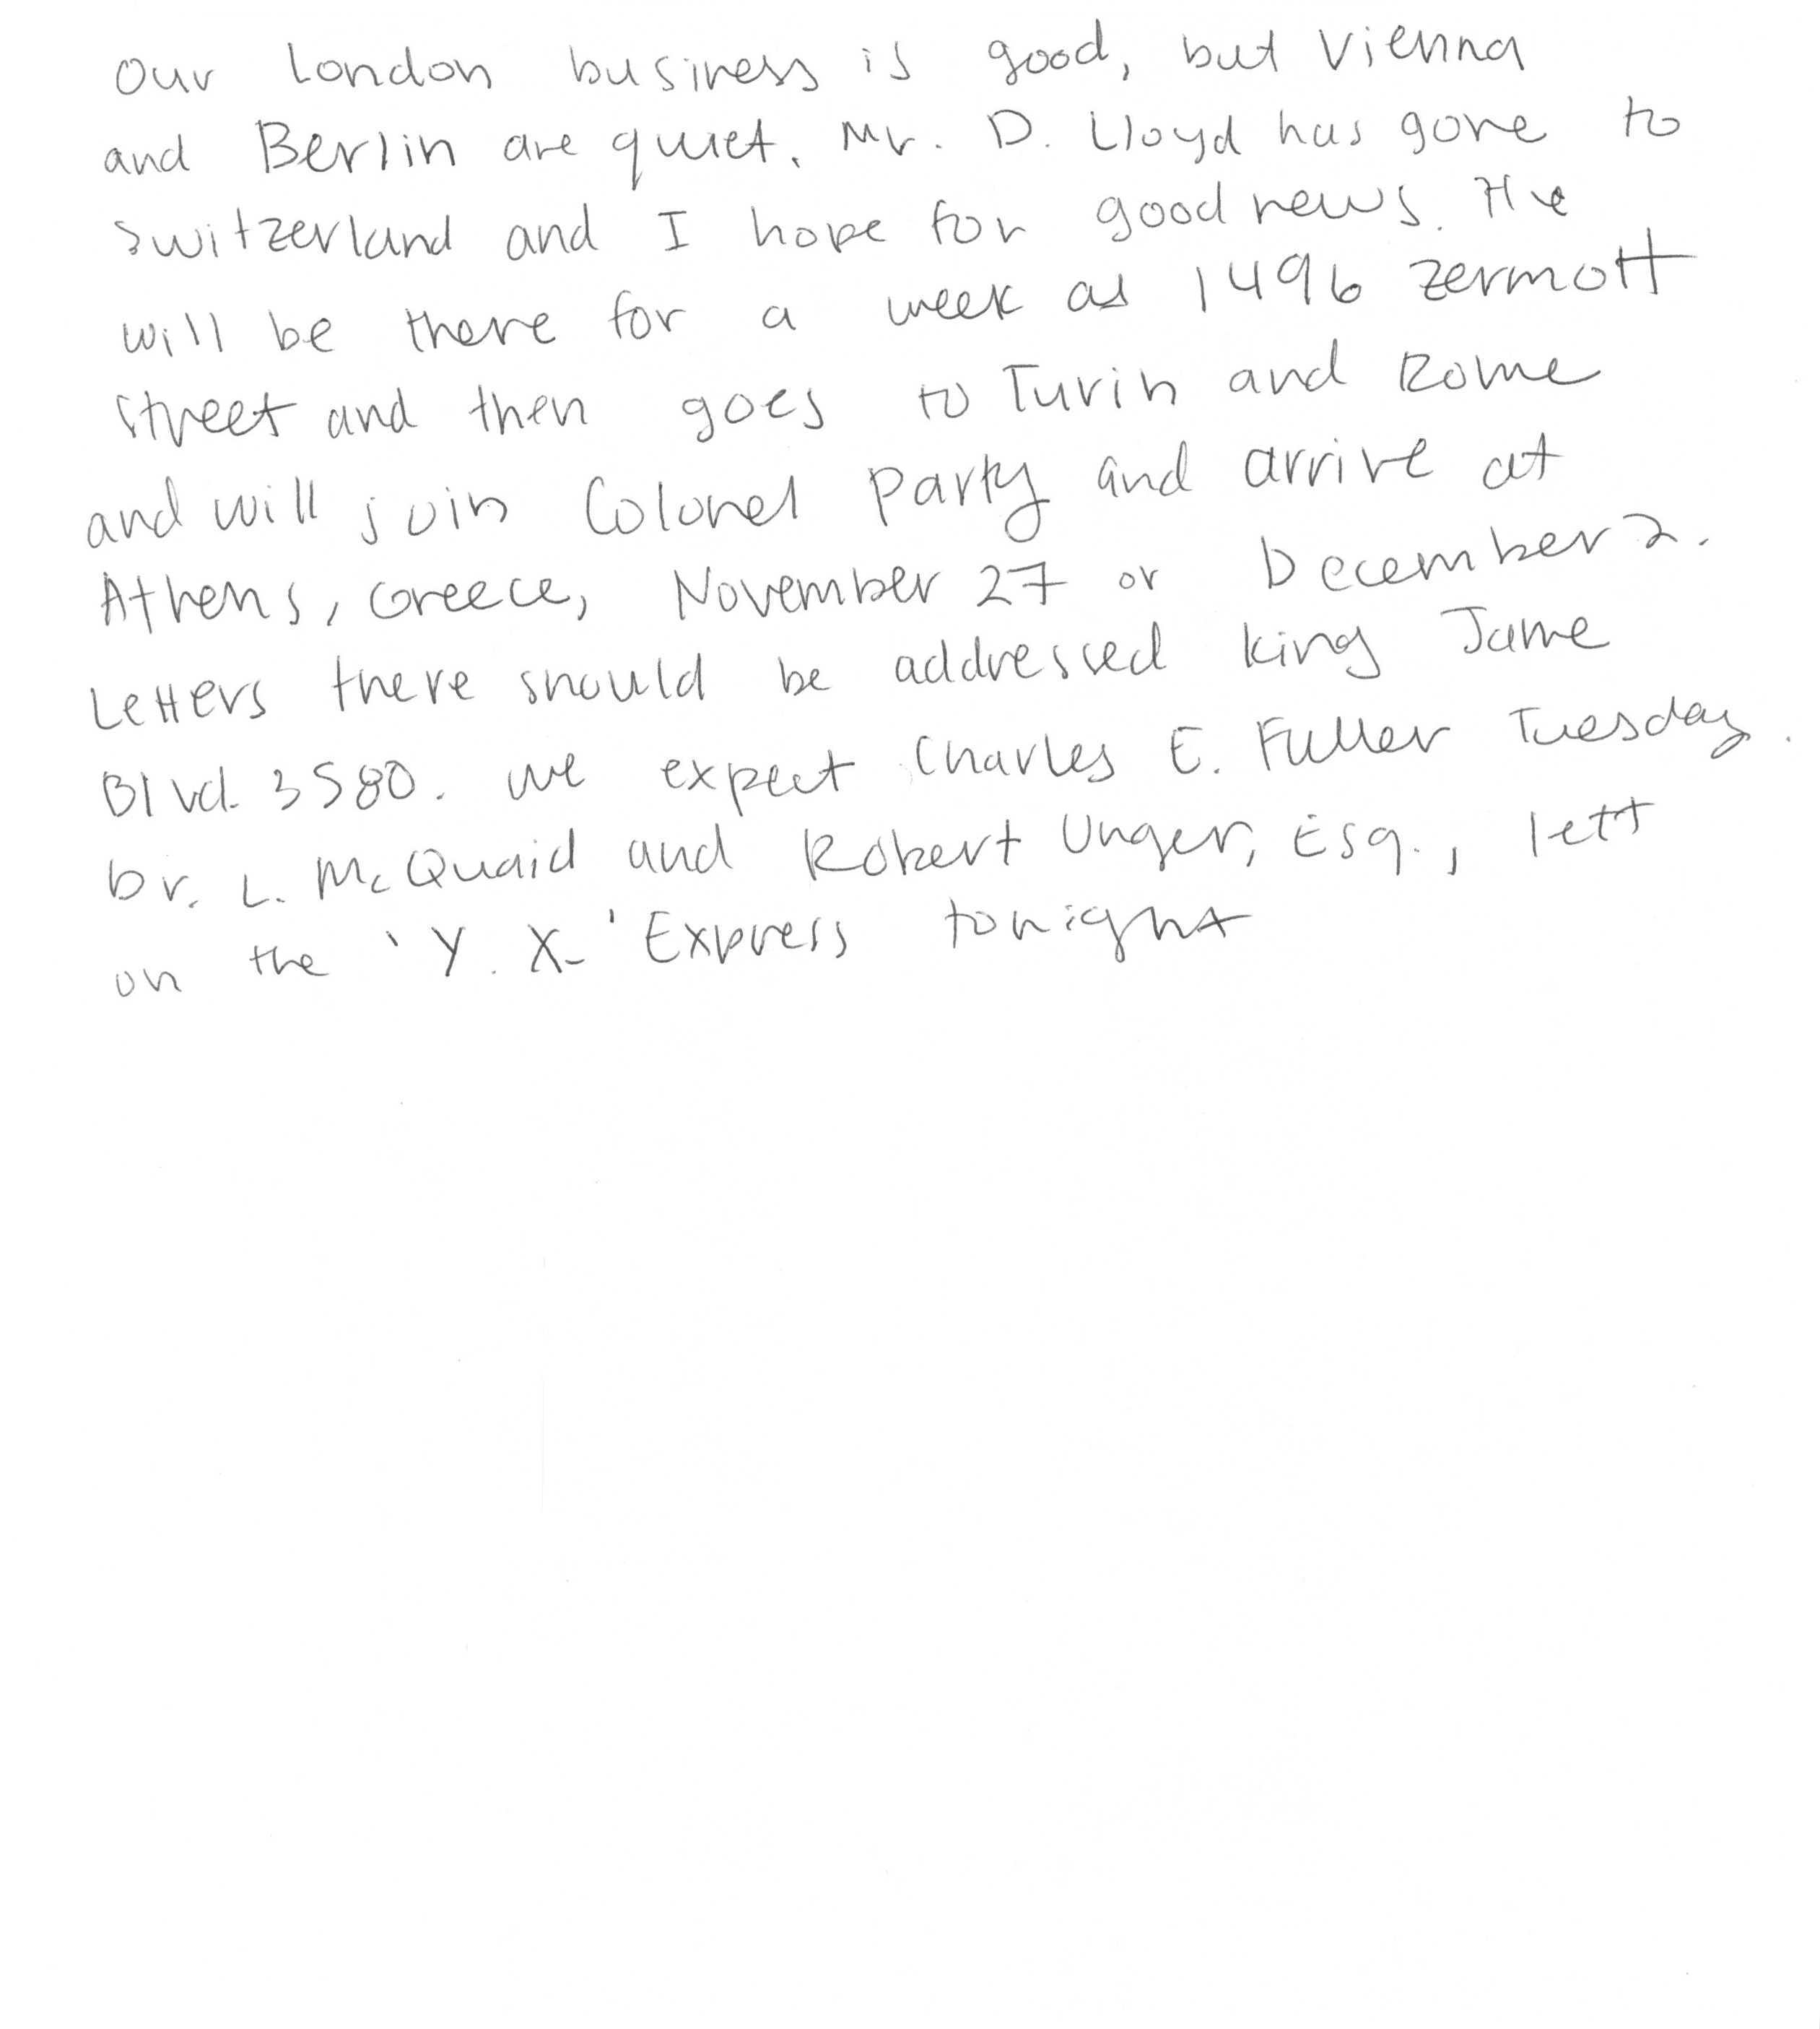 Our London business is good, but Vienna
and Berlin are quiet. Mr. D. Lloyd has gone to
Switzerland and I hope for good news. He
will be there for a week as 1496 Zermott
Street and then goes to Turin and Rome
and will join Colonel Party and arrive at
Athens, Greece, November 27 or December 2.
Letters there should be addressed King Jame
Blvd. 3580. We expect Charles E. Fuller Tuesday.
Dr. L. McQuaid and Robert Unger, Esq., lett
on the 'Y. X.' Express tonight